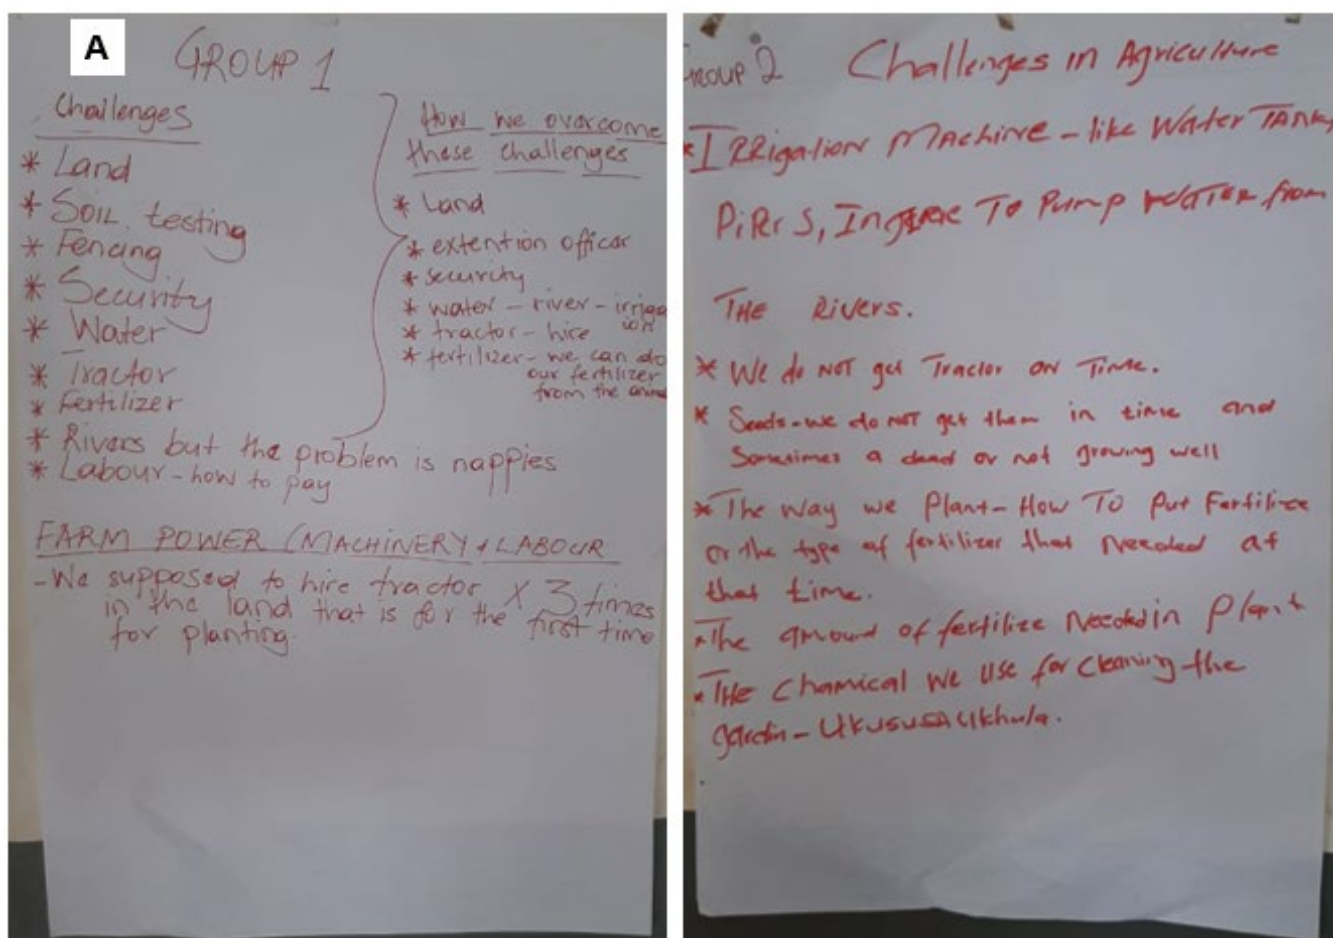 A
GROUP 1
Challenges
* Land
* Soil testing
* Fencing
* Security
* Water
* Tractor
* Fertilizer
* Rivers but the problem is nappies
* Labour - how to pay
How we overcome
these challenges
* Land
* extention officer
* security
* water - river - irriga
ion
* tractor - hire
* fertilizer - we can do
our fertilizer
from the
FARM POWER (MACHINERY + LABOUR
- We supposed to hire tractor x 3 times
in the land that is for the first time
for planting.
Group 2 Challenges in Agriculture
* IRRigation Machine - like Water Tanks
PiPer S, To Pump WATER from
THE Rivers.
* We do NOT get Tractor on Time.
* Seeds - we do NOT get them in time and
Sometimes a dead or not growing well
* The Way we Plant - How To Put Fertilize
or the type of fertilizer that Needed at
that time.
* The amount of fertilize Needed in Plant
* THE Chamical We Use for Cleaning the
gardin - Ukususa Ukhula.